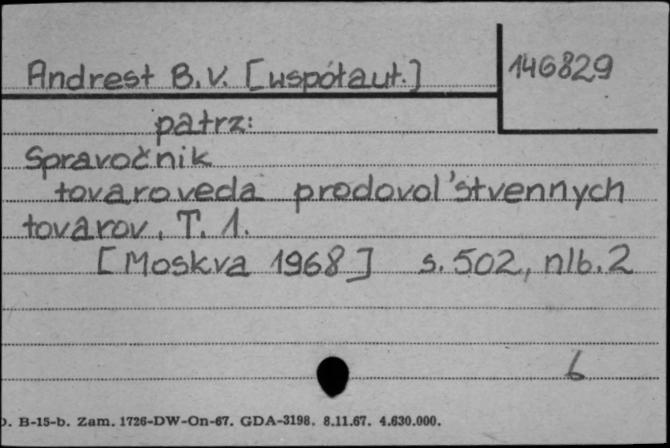 Andrest B.V. [współaut.]
146829
patrz:
Spravočnik
tovaroveda prodovol'stvennych
tovarov. T. 1.
[Moskva 1968] s. 502, nlb. 2
6
D. B-15-b. Zam. 1726-DW-On-67. GDA-3198. 8.11.67. 4.630.000.